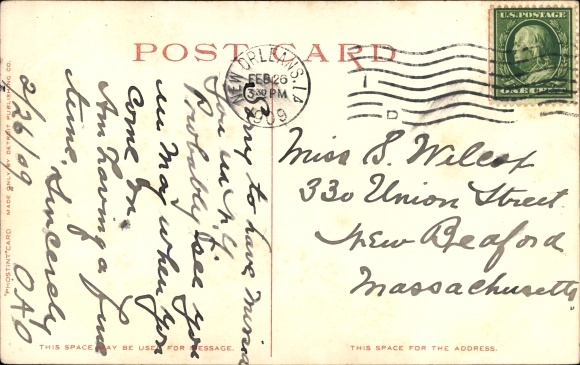 POST CARD
NEW ORLEANS, LA
FEB 26
3:30 PM
1909
U.S. POSTAGE
ONE CENT
Sorry to have missed
you in N.Y.
Probably I see you
in May when you
come on.
Am having a fine
time. Sincerely
2/26/09 OAO
Miss S. Wilcox
330 Union Street
New Bedford
Massachusetts
THIS SPACE MAY BE USED FOR MESSAGE.
THIS SPACE IS FOR THE ADDRESS.
"PHOSTINT" CARD MADE ONLY BY DETROIT PUBLISHING CO.